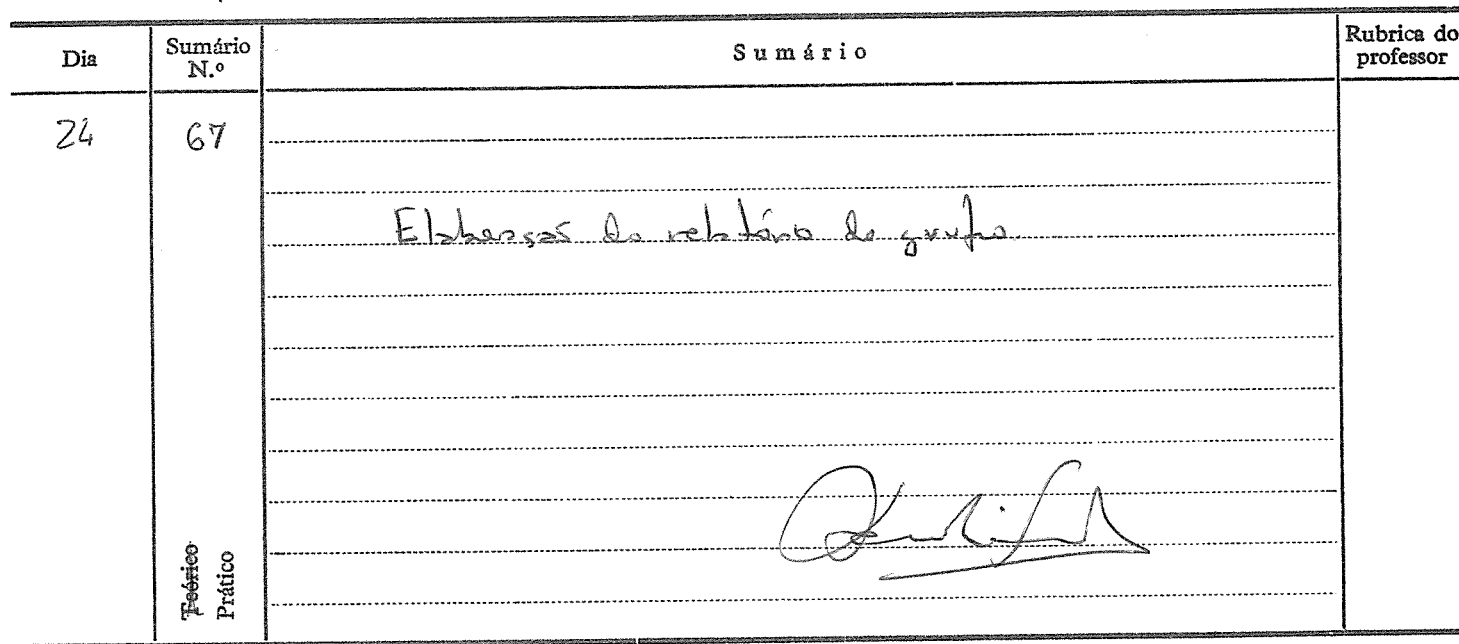 Dia
Sumário
N.º
Sumário
Rubrica do
professor
24
67
Elaboração do relatório de grupo.
Teórico
Prático